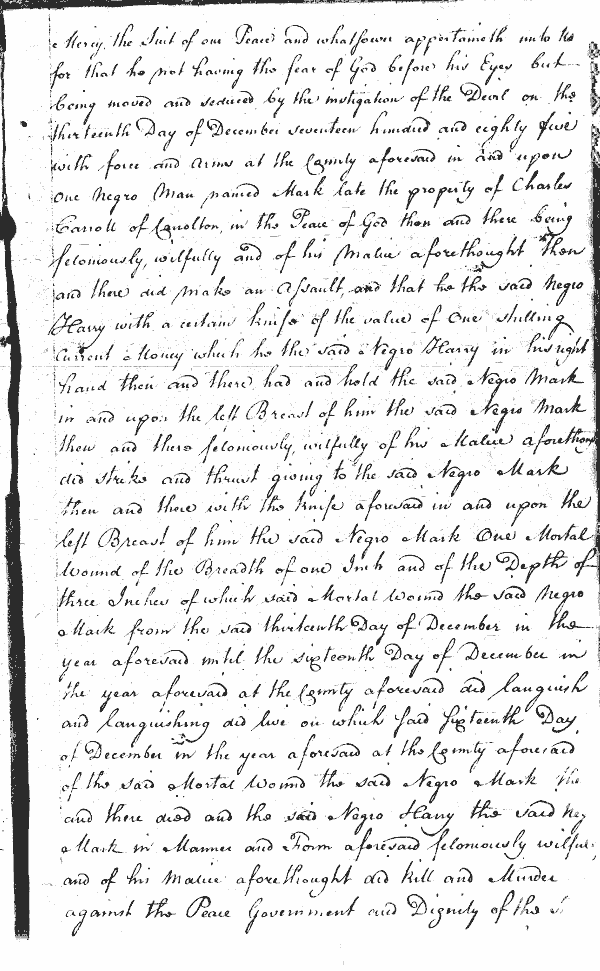 Mercy, the Suit of our Peace and whatsoever appertaineth unto the
for that he not having the fear of God before his Eyes but
being moved and seduced by the instigation of the Devil on the
thirteenth Day of December seventeen hundred and eighty five
with force and arms at the County aforesaid in and upon
One Negro Man named Mark late the property of Charles
Carroll of Carrolton, in the Peace of God then and there being
feloniously, wilfully and of his Malice aforethought then
and there did make an Assault, and that he the said Negro
Harry with a certain knife of the value of One shilling
Current Money which he the said Negro Harry in his right
hand then and there had and held the said Negro Mark
in and upon the left Breast of him the said Negro Mark
then and there feloniously, wilfully of his Malice aforethough
did strike and thrust giving to the said Negro Mark
then and there with the knife aforesaid in and upon the
left Breast of him the said Negro Mark One Mortal
Wound of the Breadth of one Inch and of the Depth of
three Inches of which said Mortal Wound the said Negro
Mark from the said thirteenth Day of December in the
year aforesaid until the sixteenth Day of December in
the year aforesaid at the County aforesaid did languish
and languishing did live on which said sixteenth Day
of December in the year aforesaid at the County aforesaid
of the said Mortal Wound the said Negro Mark the
and there died and the said Negro Harry the said Neg
Mark in Manner and Form aforesaid feloniously wilful
and of his Malice aforethought did kill and Murder
against the Peace Government and Dignity of the